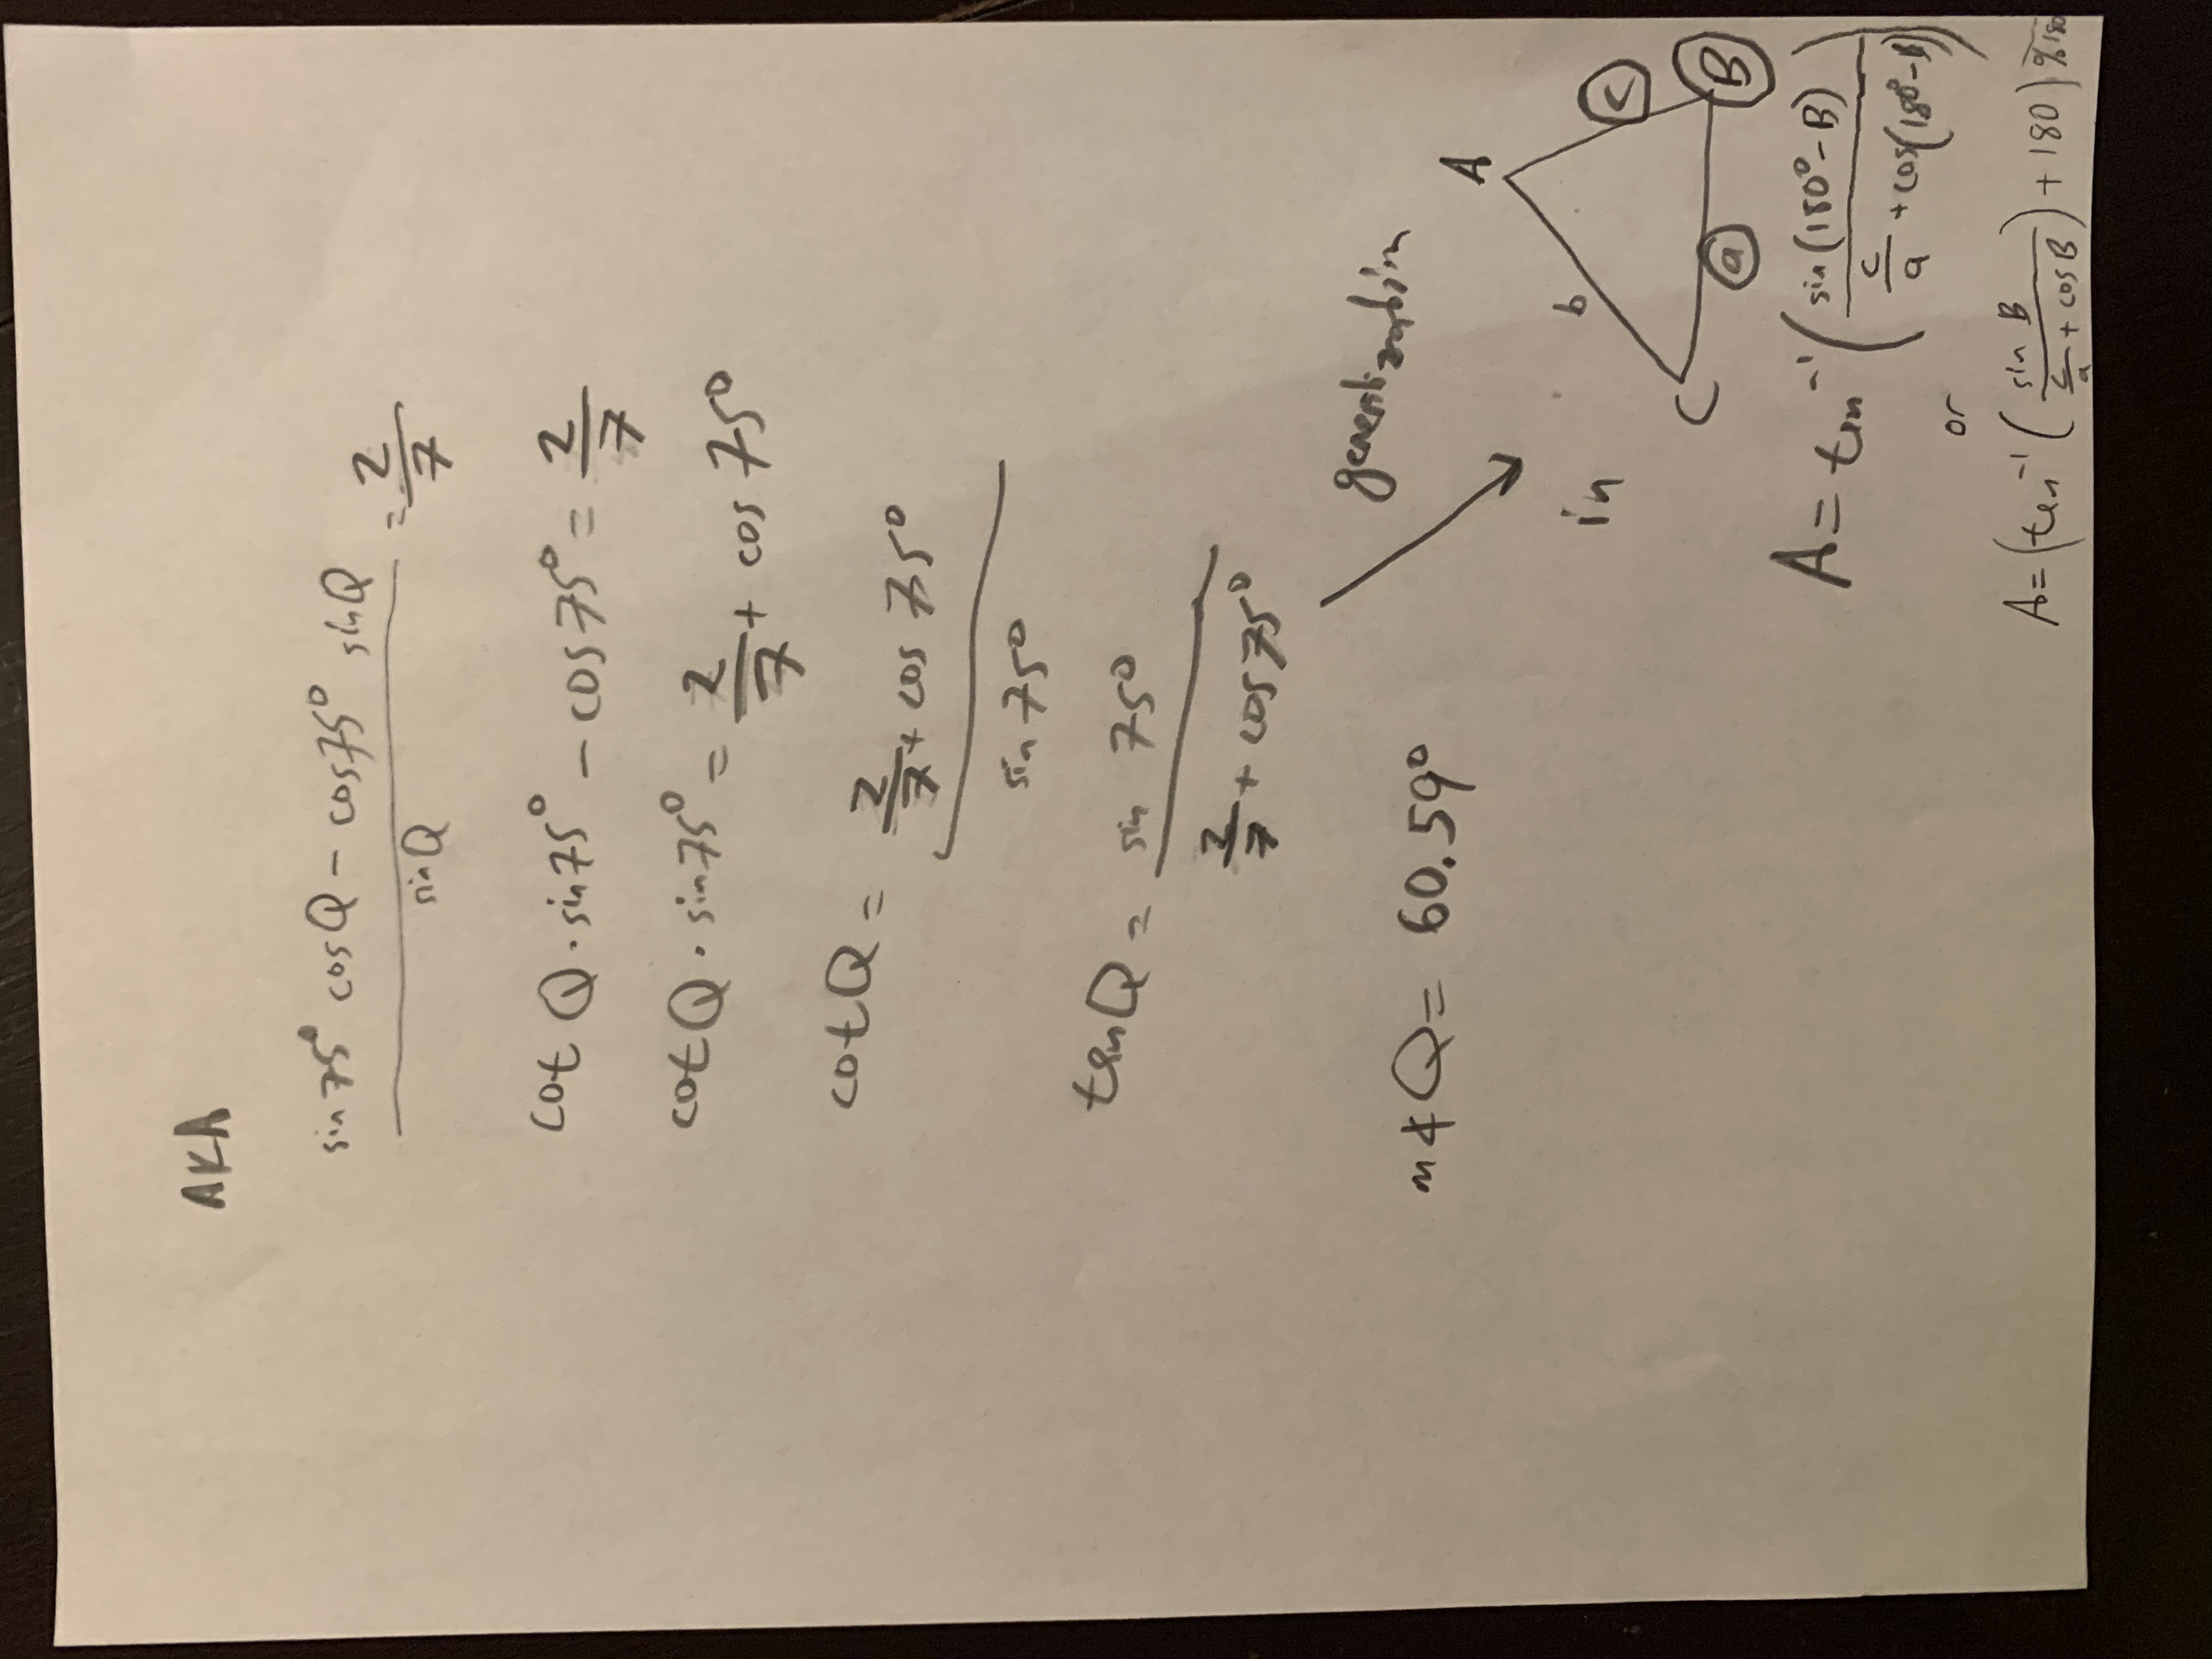 AKA
sin 75° cos Q - cos 75° sin Q / sin Q = 2/7
cot Q · sin 75° - cos 75° = 2/7
cot Q · sin 75° = 2/7 + cos 75°
cot Q = (2/7 + cos 75°) / sin 75°
tan Q = sin 75° / (2/7 + cos 75°)
generalization
m∢Q = 60.59°
in
A
b
c
C
a
B
A = tan⁻¹ ( sin (180° - B) / (c/a + cos(180° - B)) )
or
A = (tan⁻¹ ( sin B / (c/a + cos B) ) + 180) % 180